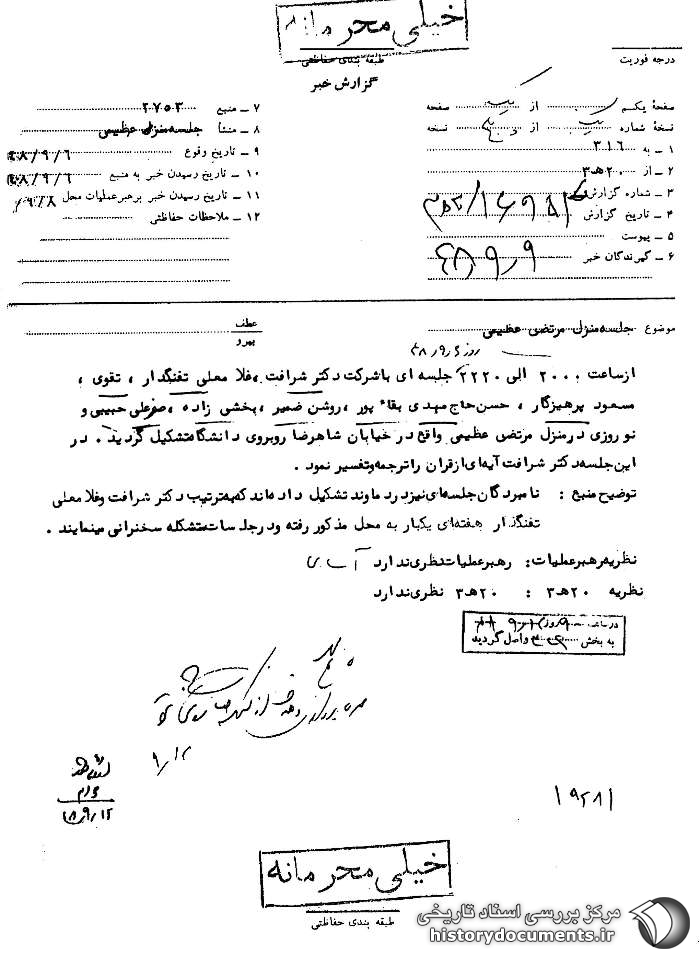 خیلی محرمانه
طبقه بندی حفاظتی
درجه فوریت
گزارش خبر
صفحهٔ یکم از یک صفحه
نسخهٔ شماره یک از پنج نسخه
۱ - به ۳۱۶
۲ - از ۲۰هـ۳
۳ - شماره گزارش
۴ - تاریخ گزارش
۵ - پیوست
۶ - گیرندگان خبر
۴۸/۹/۹
۷ - منبع ۲۷۵۳
۸ - منشأ جلسه منزل عظیمی
۹ - تاریخ وقوع ۴۸/۹/۶
۱۰ - تاریخ رسیدن خبر به منبع ۴۸/۹/۶
۱۱ - تاریخ رسیدن خبر برهبر عملیات محل ۹/۸
۱۲ - ملاحظات حفاظتی
موضوع جلسه منزل مرتضی عظیمی
عطف
پیرو
روز ۴۸/۹/۶
از ساعت ۲۰۰۰ الی ۲۲۲۰ جلسه ای با شرکت دکتر شرافت ، فلا معلی تفنگدار ، تقوی ،
مسعود پرهیزگار ، حسن حاج مهدی بقاء پور ، روشن ضمیر ، بخشی زاده ، صفرعلی حبیبی و
نوروزی در منزل مرتضی عظیمی واقع در خیابان شاهرضا روبروی دانشگاه تشکیل گردید . در
این جلسه دکتر شرافت آیه ای از قران را ترجمه و تفسیر نمود .
توضیح منبع : نامبردگان جلسه ای نیز در دماوند تشکیل داده اند که به ترتیب دکتر شرافت و فلا معلی
تفنگدار هفته ای یکبار به محل مذکور رفته و در جلسات متشکله سخنرانی مینمایند .
نظریه رهبر عملیات : رهبر عملیات نظری ندارد
نظریه ۲۰هـ۳ : ۲۰هـ۳ نظری ندارد
در ساعت روز
به بخش واصل گردید
۹/۱۲
۱۹۲۸۱
خیلی محرمانه
طبقه بندی حفاظتی
مرکز بررسی اسناد تاریخی
historydocuments.ir